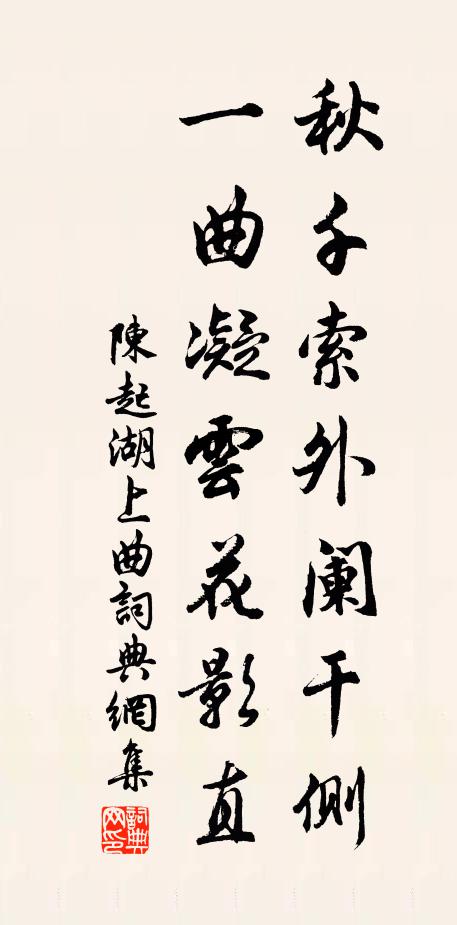 秋千索外阑干側
一曲凝雲花影直
陳起湖上曲詞典網集
詞典網印